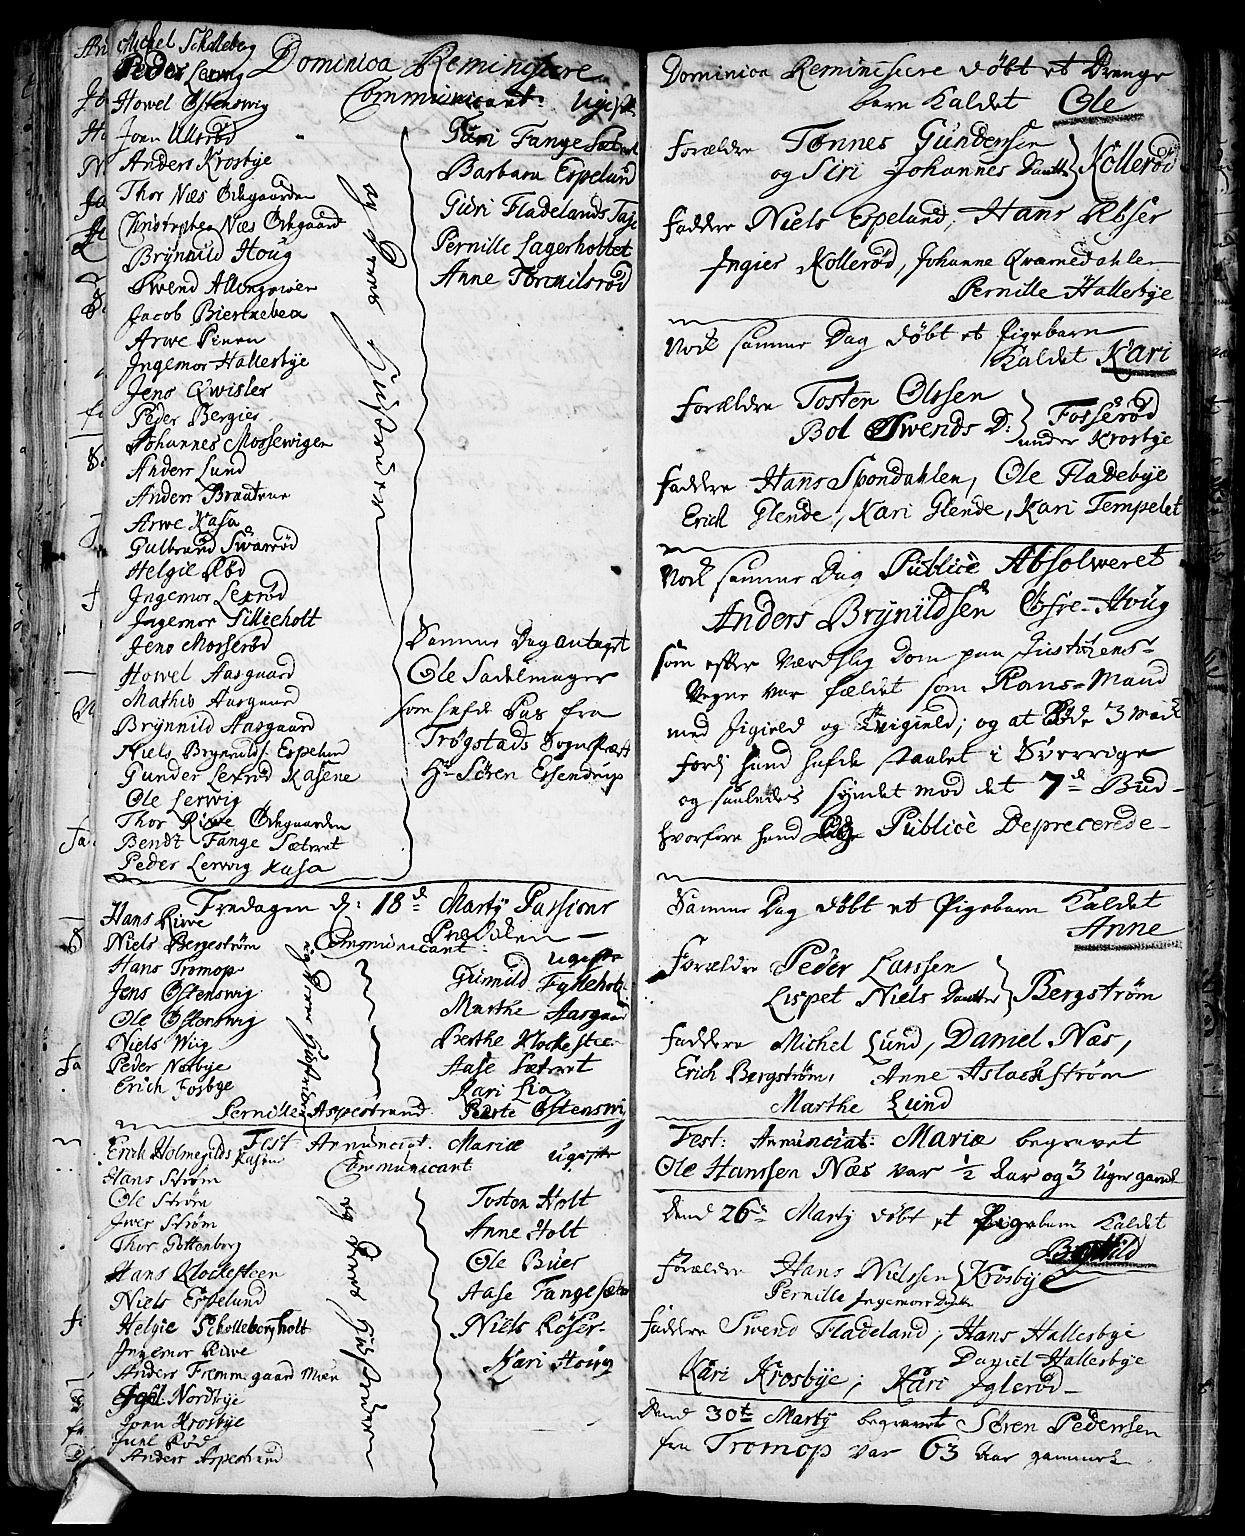 Michel Schalleberg
Peder Lerwig
Dominica Reminiscere
Communicant: ugifte
Howel Ostenswig
Joen Ulsrød
Anders Krosbye
Thor Næs Ødegaarden
Christopher Næs Ødegaard
Brynnild Houg
Swend
Jacob Biertnebea
Arwe
Ingemor Hallesbye
Jens Qwisler
Peder Bergier
Johannes Mossewigen
Anders Lund
Anders Braatene
Arwe Kasa
Gulbrand Swarrød
Helgie Rød
Ingemor Lexrød
Ingemor Sillieholt
Jens Morserød
Howel Aasgaard
Mathis Aasgaard
Brynnild Aasgaard
Niels Brynnilds. Espelund
Gunder Lexrød Kasene
Ole Lerwig
Thor Riwe Ødegaarden
Bendt Fange Sætret
Peder Lerwig Kasa
og deres Hustruer
Guri Fange Sætret
Barbara Espelund
Guri Fladelands
Pernille Lagerholtet
Anne Tormilsrød
Samme Dag antaget
Ole Sadelmager
som hafde Pas fra
Trøgstads Sogne Præst
Hr Søren Essendrup
Fredagen d: 18d Marty Passions
Prædiken
Communicant: ugifte
Hans Riwe
Niels Bergestrøm
Hans Tromop
Jens Ostenswig
Ole Ostenswig
Niels Wiig
Peder Næsbye
Erich Fosbye
og deres Hustruer
Gunild Fylleholt
Marthe Aasgaard
Berthe Klockestee
Aase Sætret
Kari Lia
Pernille Aspestrand Berte Ostenswig
Fest: Annunciat: Mariæ
Communicant ugifte
Erich Holmegilds Kasene
Hans Strøm
Ole Strøm
Iwer Strøm
Thor Gottenborg
Hans Klockesteen
Niels Espelund
Helgie Scholleborgholt
Ingemor Riwe
Anders Fremmgaard Moen
Nordbye
Joen Krosbye
Juel Rød
Anders Aspestrand
og deres Hustruer
Tosten Holt
Anne Holt
Ole Buer
Aase Fange sætr
Niels Røser
Kari Houg
Dominica Reminiscere døbt et Drenge
barn kaldet Ole
Forældre Tønnes Gundersen
og Siri Johannes Daatter Kollerød
Faddere Niels Espelund, Hans Røser
Ingier Kollerød, Johanne Qvarnedahlen
Pernille Hallesbye
Nock samme Dag døbt et Pigebarn
kaldet Kari
Forældre Tosten Olssen
Bol Swends D: Fosserød
under Krosbye
Faddere Hans Spondahlen, Ole Fladebye
Erich Glende, Kari Glende, Kari Tempelet
Nock samme Dag Publicè Absolweret
Anders Brynildsen Øfre-Houg
som efter Værdslig Dom paa Justitiens
Vegne var fældet som Rans-Mand
med Jigield og Tvigield; og at bøde 3 Mark
fordj hand hafde staalet i Sverrige
og saaledes syndet mod det 7d Bud
hvorfore hand Publicè Deprecerede
Samme Dag døbt et Pigebarn kaldet
Anne
Forældre Peder Larssen
Lispet Niels Daatter Bergstrøm
Faddere Michel Lund, Daniel Næs,
Erich Bergstrøm, Anne Aslackstrøm
Marthe Lund
Fest: Annunciat: Mariæ begravet
Ole Hanssen Næs var 1/2 Aar og 3 Uger gaml
Dend 26d Marty døbt et Pigebarn kaldet
Forældre Hans Nielssen Krosbye
Pernille Ingemors Daatter
Faddere Swend Fladeland, Hans Hallesbye
Daniel Hallesbye
Kari Krosbye; Kari Iglerød
Dend 30te Marty begravet Søren Pedersen
fra Tromop var 63 Aar gammel